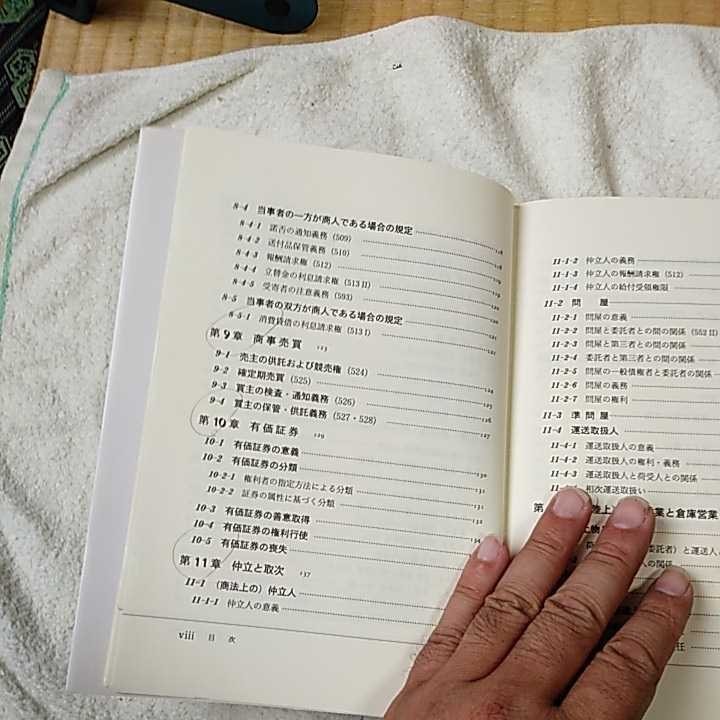 8-4 当事者の一方が商人である場合の規定
8-4-1 諾否の通知義務 (509) 118
8-4-2 送付品保管義務 (510)
8-4-3 報酬請求権 (512)
8-4-4 立替金の利息請求権 (513 II)
8-4-5 受寄者の注意義務 (593)
8-5 当事者の双方が商人である場合の規定
8-5-1 消費貸借の利息請求権 (513 I) 121
第9章 商事売買 123
9-1 売主の供託および競売権 (524)
9-2 確定期売買 (525) 124
9-3 買主の検査・通知義務 (526) 125
9-4 買主の保管・供託義務 (527・528) 126
127
第10章 有価証券 129
10-1 有価証券の意義
10-2 有価証券の分類 130
10-2-1 権利者の指定方法による分類 131
10-2-2 証券の属性に基づく分類 131
10-3 有価証券の善意取得 132
10-4 有価証券の権利行使
10-5 有価証券の喪失 134
第11章 仲立と取次 137
11-1 (商法上の) 仲立人
11-1-1 仲立人の意義
viii 目 次
11-1-2 仲立人の義務
11-1-3 仲立人の報酬請求権 (512)
11-1-4 仲立人の給付受領権限
11-2 問 屋
11-2-1 問屋の意義
11-2-2 問屋と委託者との間の関係 (552 II)
11-2-3 問屋と第三者との間の関係
11-2-4 委託者と第三者との間の関係
11-2-5 問屋の一般債権者と委託者との関
11-2-6 問屋の義務
11-2-7 問屋の権利
11-3 準 問 屋
11-4 運送取扱人
11-4-1 運送取扱人の意義
11-4-2 運送取扱人の権利・義務
11-4-3 運送取扱人と荷受人との関係
相次運送取扱い
業と倉庫営業
委託者) と運送人
の関係
任